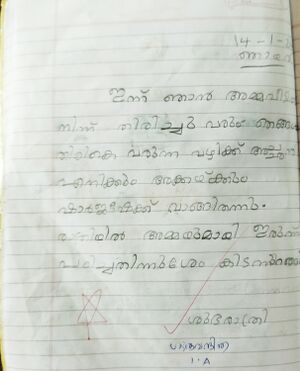 14-1-
ഞായർ
ഇന്ന് ഞാൻ അമ്മവീട്ടിൽ
നിന്ന് തിരിച്ചു വരും ഞങ്ങൾ
തിരികെ വരുന്ന വഴിക്ക് അച്ഛൻ
എനിക്കും അക്കയ്ക്കും
ഷാർജഷേക്ക് വാങ്ങിതന്നു.
രാത്രിയിൽ അമ്മയുമായി ഇരുന്ന്
പഠിച്ചതിനുശേഷം കിടന്നുറങ്ങി
ശുഭരാത്രി
1.A